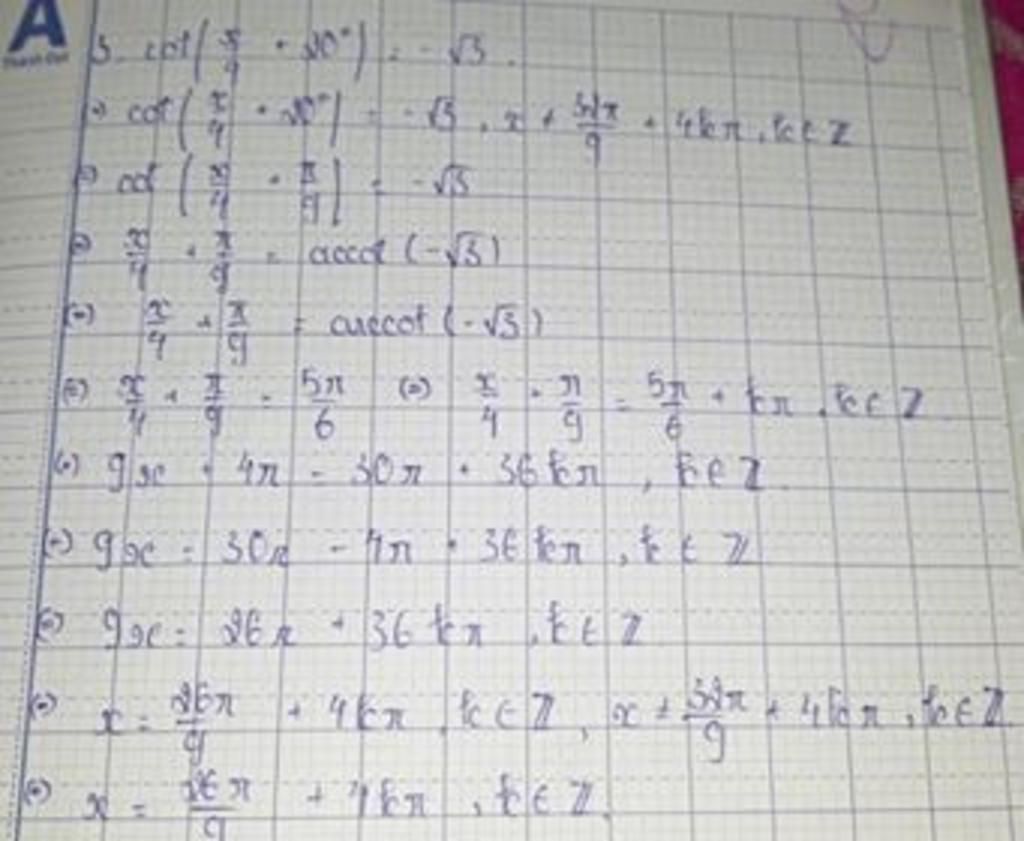 A
3. cot(x/4 + 20°) = -√3.
(=) cot(x/4 + 20°) = -√3, x ≠ 32π/9 + 4kπ, k ∈ Z
(=) cot(x/4 + π/9) = -√3
(=) x/4 + π/9 = arccot(-√3)
(=) x/4 + π/9 = arccot(-√3)
(=) x/4 + π/9 = 5π/6 (=) x/4 + π/9 = 5π/6 + kπ, k ∈ Z
(=) 9x + 4π = 30π + 36kπ, k ∈ Z
(=) 9x = 30π - 4π + 36kπ, k ∈ Z
(=) 9x = 26π + 36kπ, k ∈ Z
(=) x = 26π/9 + 4kπ, k ∈ Z, x ≠ 32π/9 + 4kπ, k ∈ Z
(=) x = 26π/9 + 4kπ, k ∈ Z.